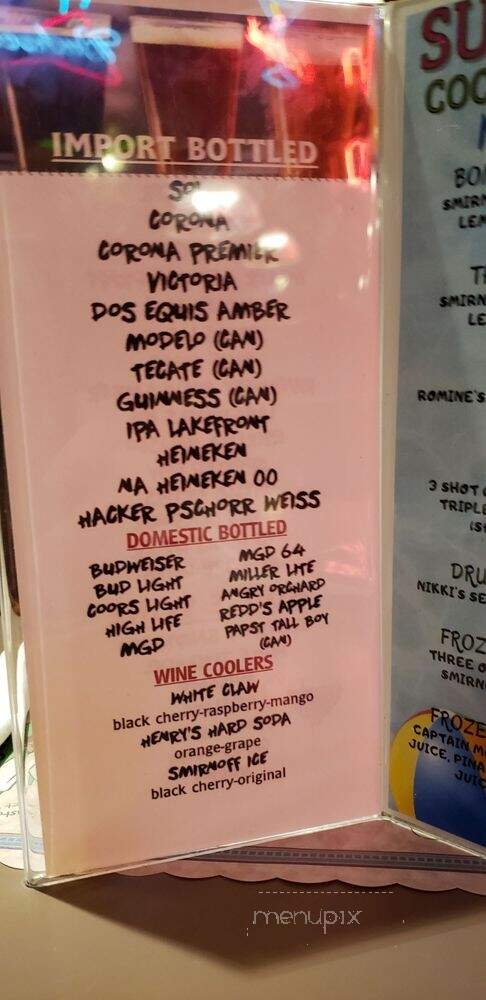 IMPORT BOTTLED
SOL
CORONA
CORONA PREMIER
VICTORIA
DOS EQUIS AMBER
MODELO (CAN)
TECATE (CAN)
GUINNESS (CAN)
IPA LAKEFRONT
HEINEKEN
NA HEINEKEN 00
HACKER PSCHORR WEISS
DOMESTIC BOTTLED
BUDWEISER
BUD LIGHT
COORS LIGHT
HIGH LIFE
MGD
MGD 64
MILLER LITE
ANGRY ORCHARD
REDD'S APPLE
PAPST TALL BOY
(CAN)
WINE COOLERS
WHITE CLAW
black cherry-raspberry-mango
HENRY'S HARD SODA
orange-grape
SMIRNOFF ICE
black cherry-original
SU
COO
BO
SMIRN
LEM
TH
SMIRN
LE
ROMINE'S
3 SHOT
TRIPLE
DRU
NIKKI'S SE
FROZ
THREE O
SMIRN
FROZE
CAPTAIN M
JUICE, PINA
JUIC
menupix